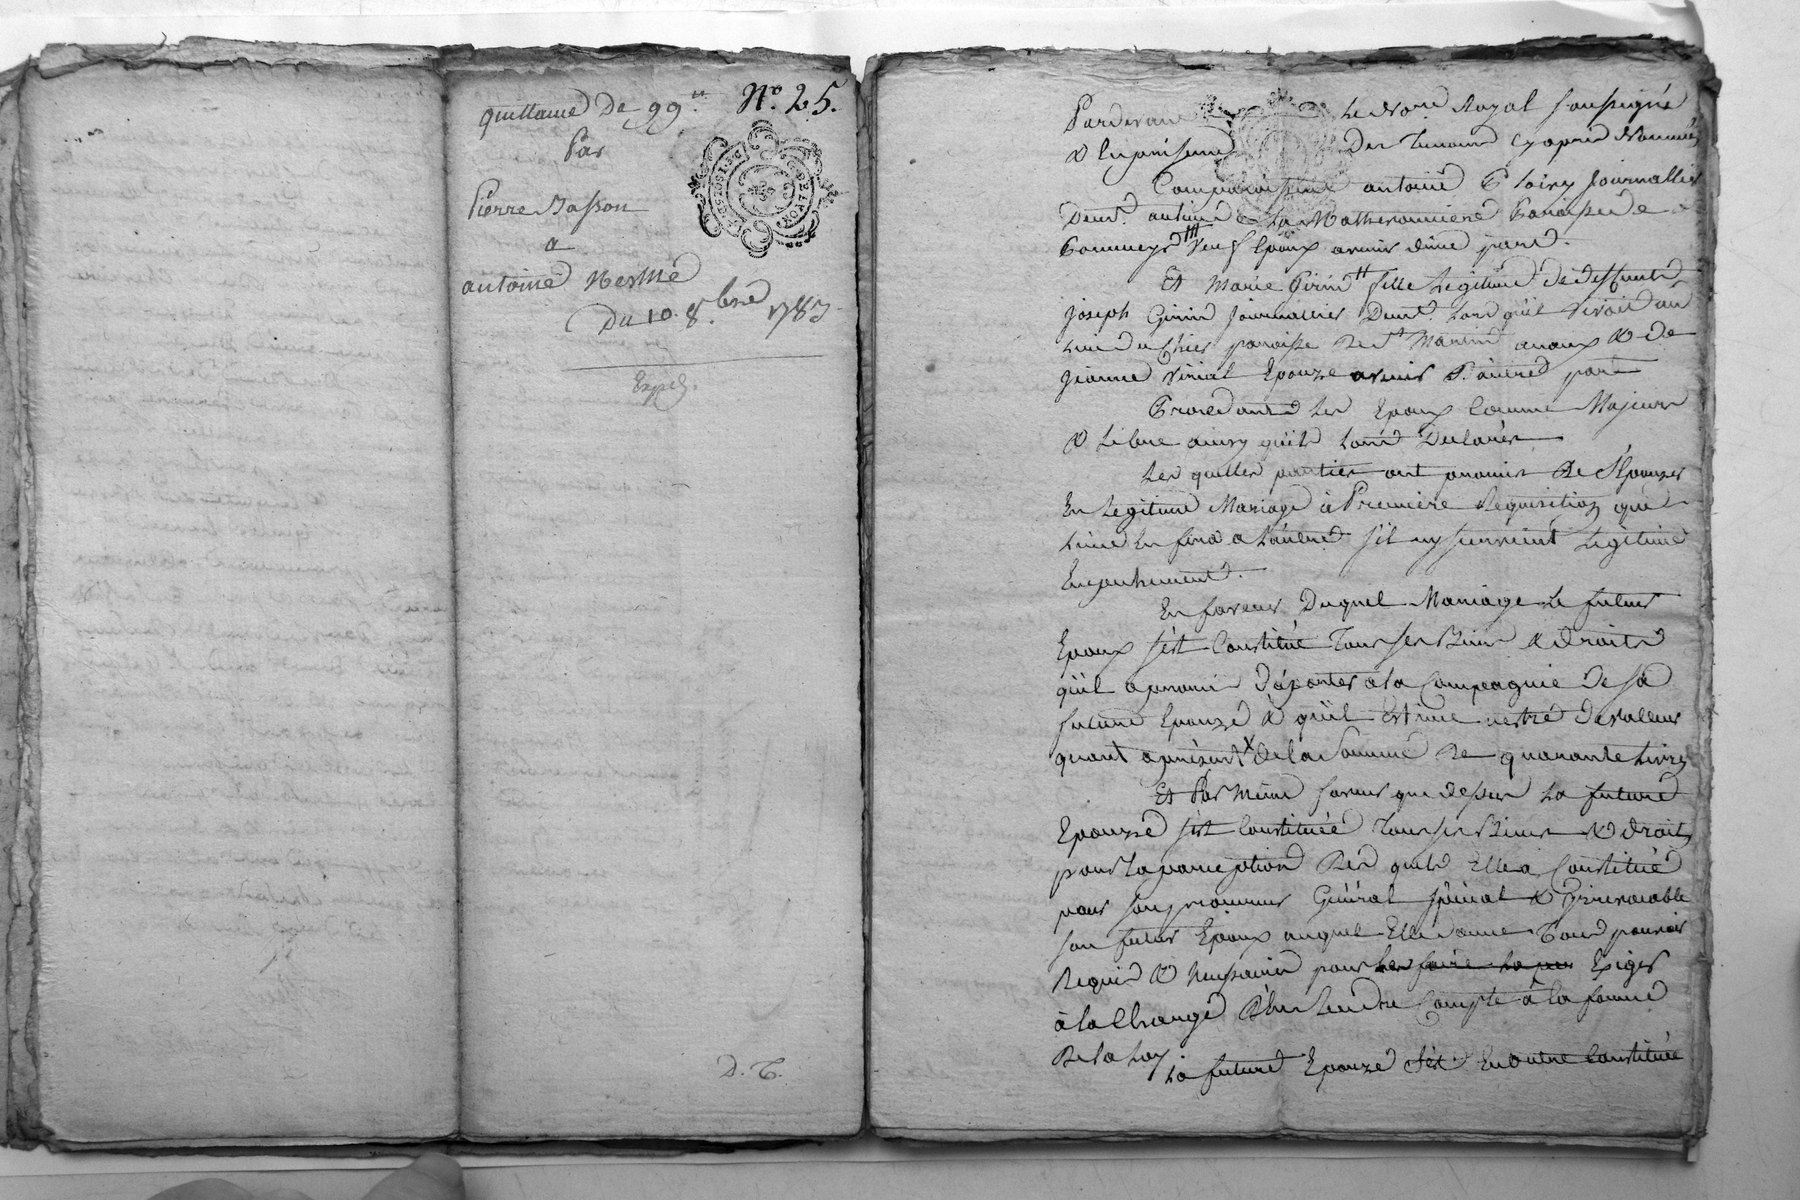 N.º 25.
quittance De 99.ᵗᵗ
Par
Pierre Masson
a
antoine Nesme
Du 10. 8.bre 1783
Exped.
D. T.
GENERALITE DE LYON
Pardevant Le No.re Royal Soussigné
& En presence Des Temoins cy apres Nommés
Comparaissent antoine journallier
Demt. au lieu de La Matheronniere Paroisse de
Pommeys veuf Epoux avenir d'une part.
Et Marie Girin fille Legitime de deffunt
joseph Girin journallier Demt. Lors qu'il vivoit au
lieu du paroisse de St Martin anaux & de
jeanne Vinial Epouze avenir D'autre part
Procedant Les Epoux Comme Majeurs
& Libre ainsy qu'ils Lont Declarés
Lesquelles parties ont promis De S'Epouzer
En Legitime Mariage à Premiere Requisition que
L'une En fera a Lautre S'il n'y survient Legitime
Empechement.
En faveur Duquel Mariage Le futur
Epoux s'est Constitué Tous ses Biens & droits
qu'il a promis D'aporter a la Compagnie de sa
future Epouze & qu'il Estime de valleur
quant a present de la Somme De quarante Livres
Et Par Meme faveur que dessus La future
Epouze s'est Constituée Tous ses Biens & droits
pour La perception Des quels Elle a Constitué
pour son procureur General special & Irrevocable
son futur Epoux auquel Elle donne Tous pouvoir
Requis & Necessaires pour les faire Exiger
à la Charge D'En Rendre Compte à la forme
De la Loy
La future Epouze s'est En outre Constituée